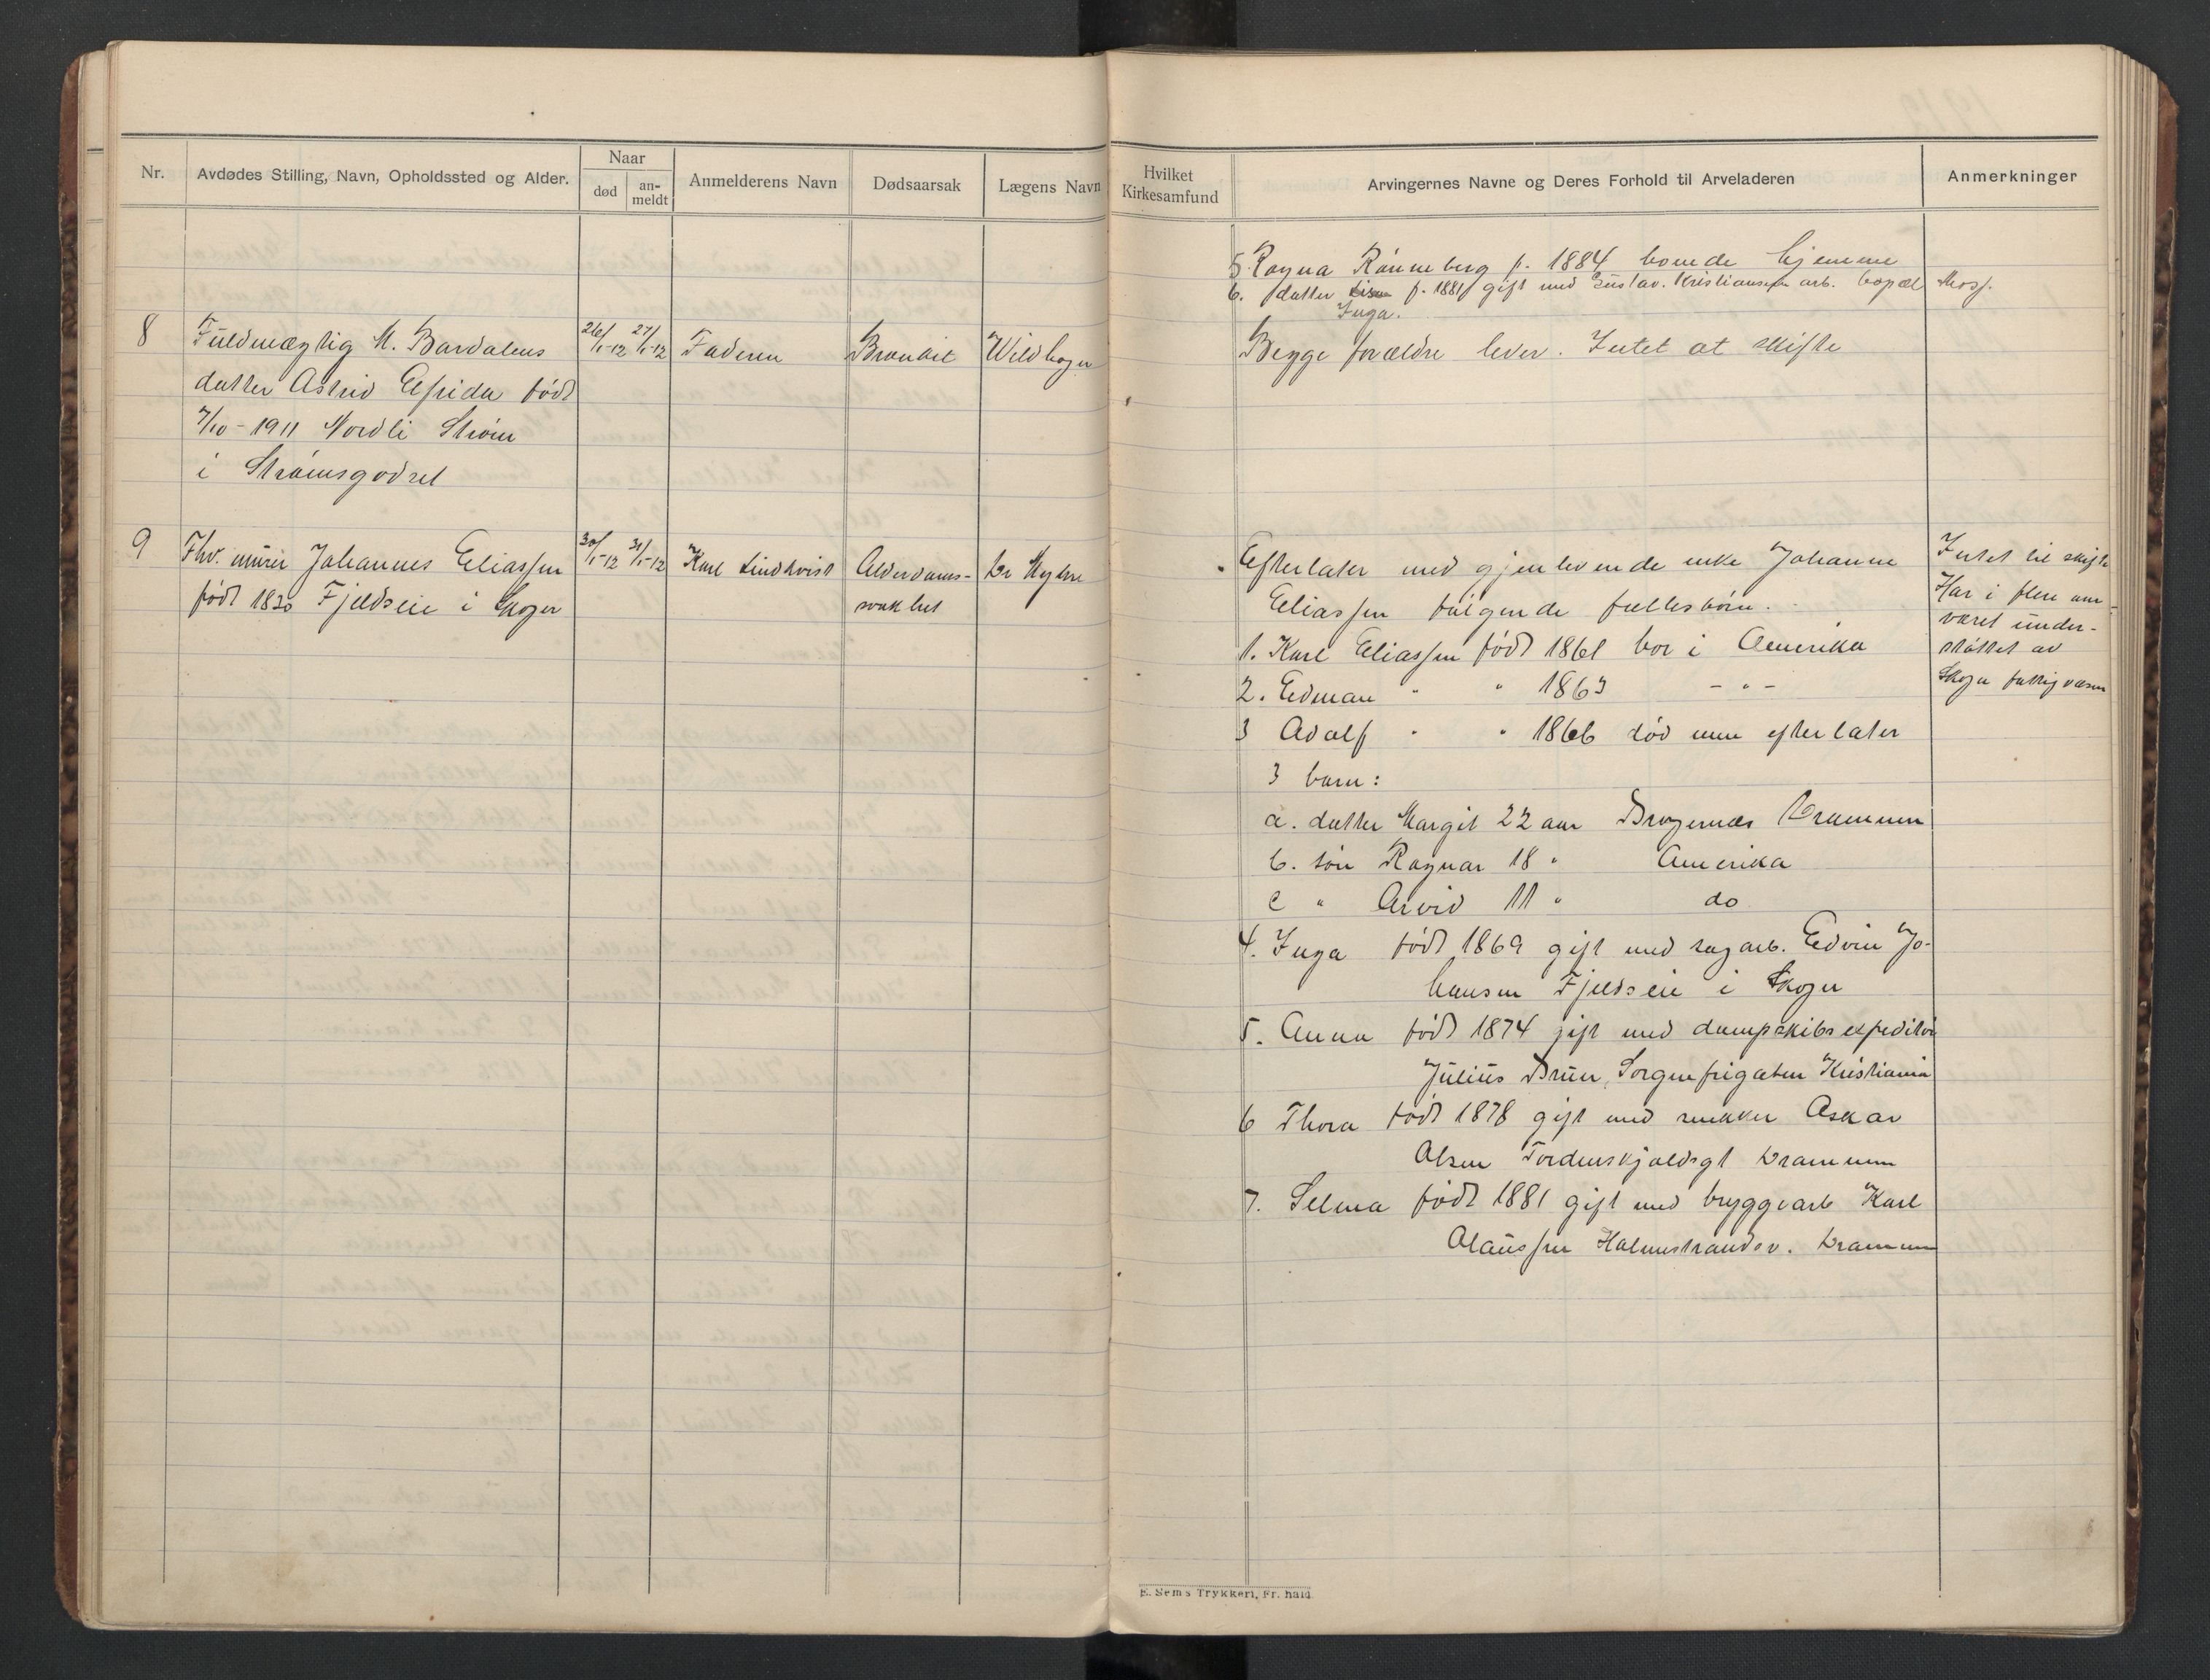 Nr.
Avdødes Stilling, Navn, Opholdssted og Alder.
Naar
død
an-
meldt
Anmelderens Navn
Dødsaarsak
Lægens Navn
Hvilket
Kirkesamfund
Arvingernes Navne og Deres Forhold til Arveladeren
Anmerkninger
5. Ragna Rønneberg f. 1884 boende hjemme
6. datter f. 1881 gift med Gustav. Kristiansen arb. bopæl Moss.
Inga.
8
Fuldmægtig M. Bardalens
datter Astrid Elfrida født
7/10-1911 Nordli Strøm
i Strømsgodset
26/1-12
27/1-12
Faderen
Bronkit
Wildhagen
Begge forældre lever. Intet at skifte
9
Fhv. murer Johannes Eliassen
født 1830 Fjeldseie i Skoger
30/1-12
31/1-12
Karl Lindkvist
Alderdoms-
svakhet
Dr Myhre
Efterlater med gjenlevende enke Johanne
Eliassen følgende fællesbørn.
1. Karl Eliassen født 1861 bor i Amerika
2. Edman " " 1863 - " -
3 Adolf " " 1866 død men efterlater
3 barn:
a. datter Margit 22 aar Bragernæs Drammen
b. søn Ragnar 18 " Amerika
c " Arvid 11 " do
4. Inga født 1869 gift med sagarb. Edvin Jo-
hansen Fjeldseie i Skoger
5. Anna født 1874 gift med dampskibsexpeditør
Julius Bruun, Sorgenfrigaten Kristiania
6 Thora født 1878 gift med snekker Oskar
Olsen Tordenskjoldsgt Drammen
7. Selma født 1881 gift med bryggearb Karl
Olaussen Holmestrandsv. Drammen
Intet til skifte
Har i flere aar
været under-
støttet av
Skoger fattigvæsen
E. Sem's Trykkeri, Fr.hald